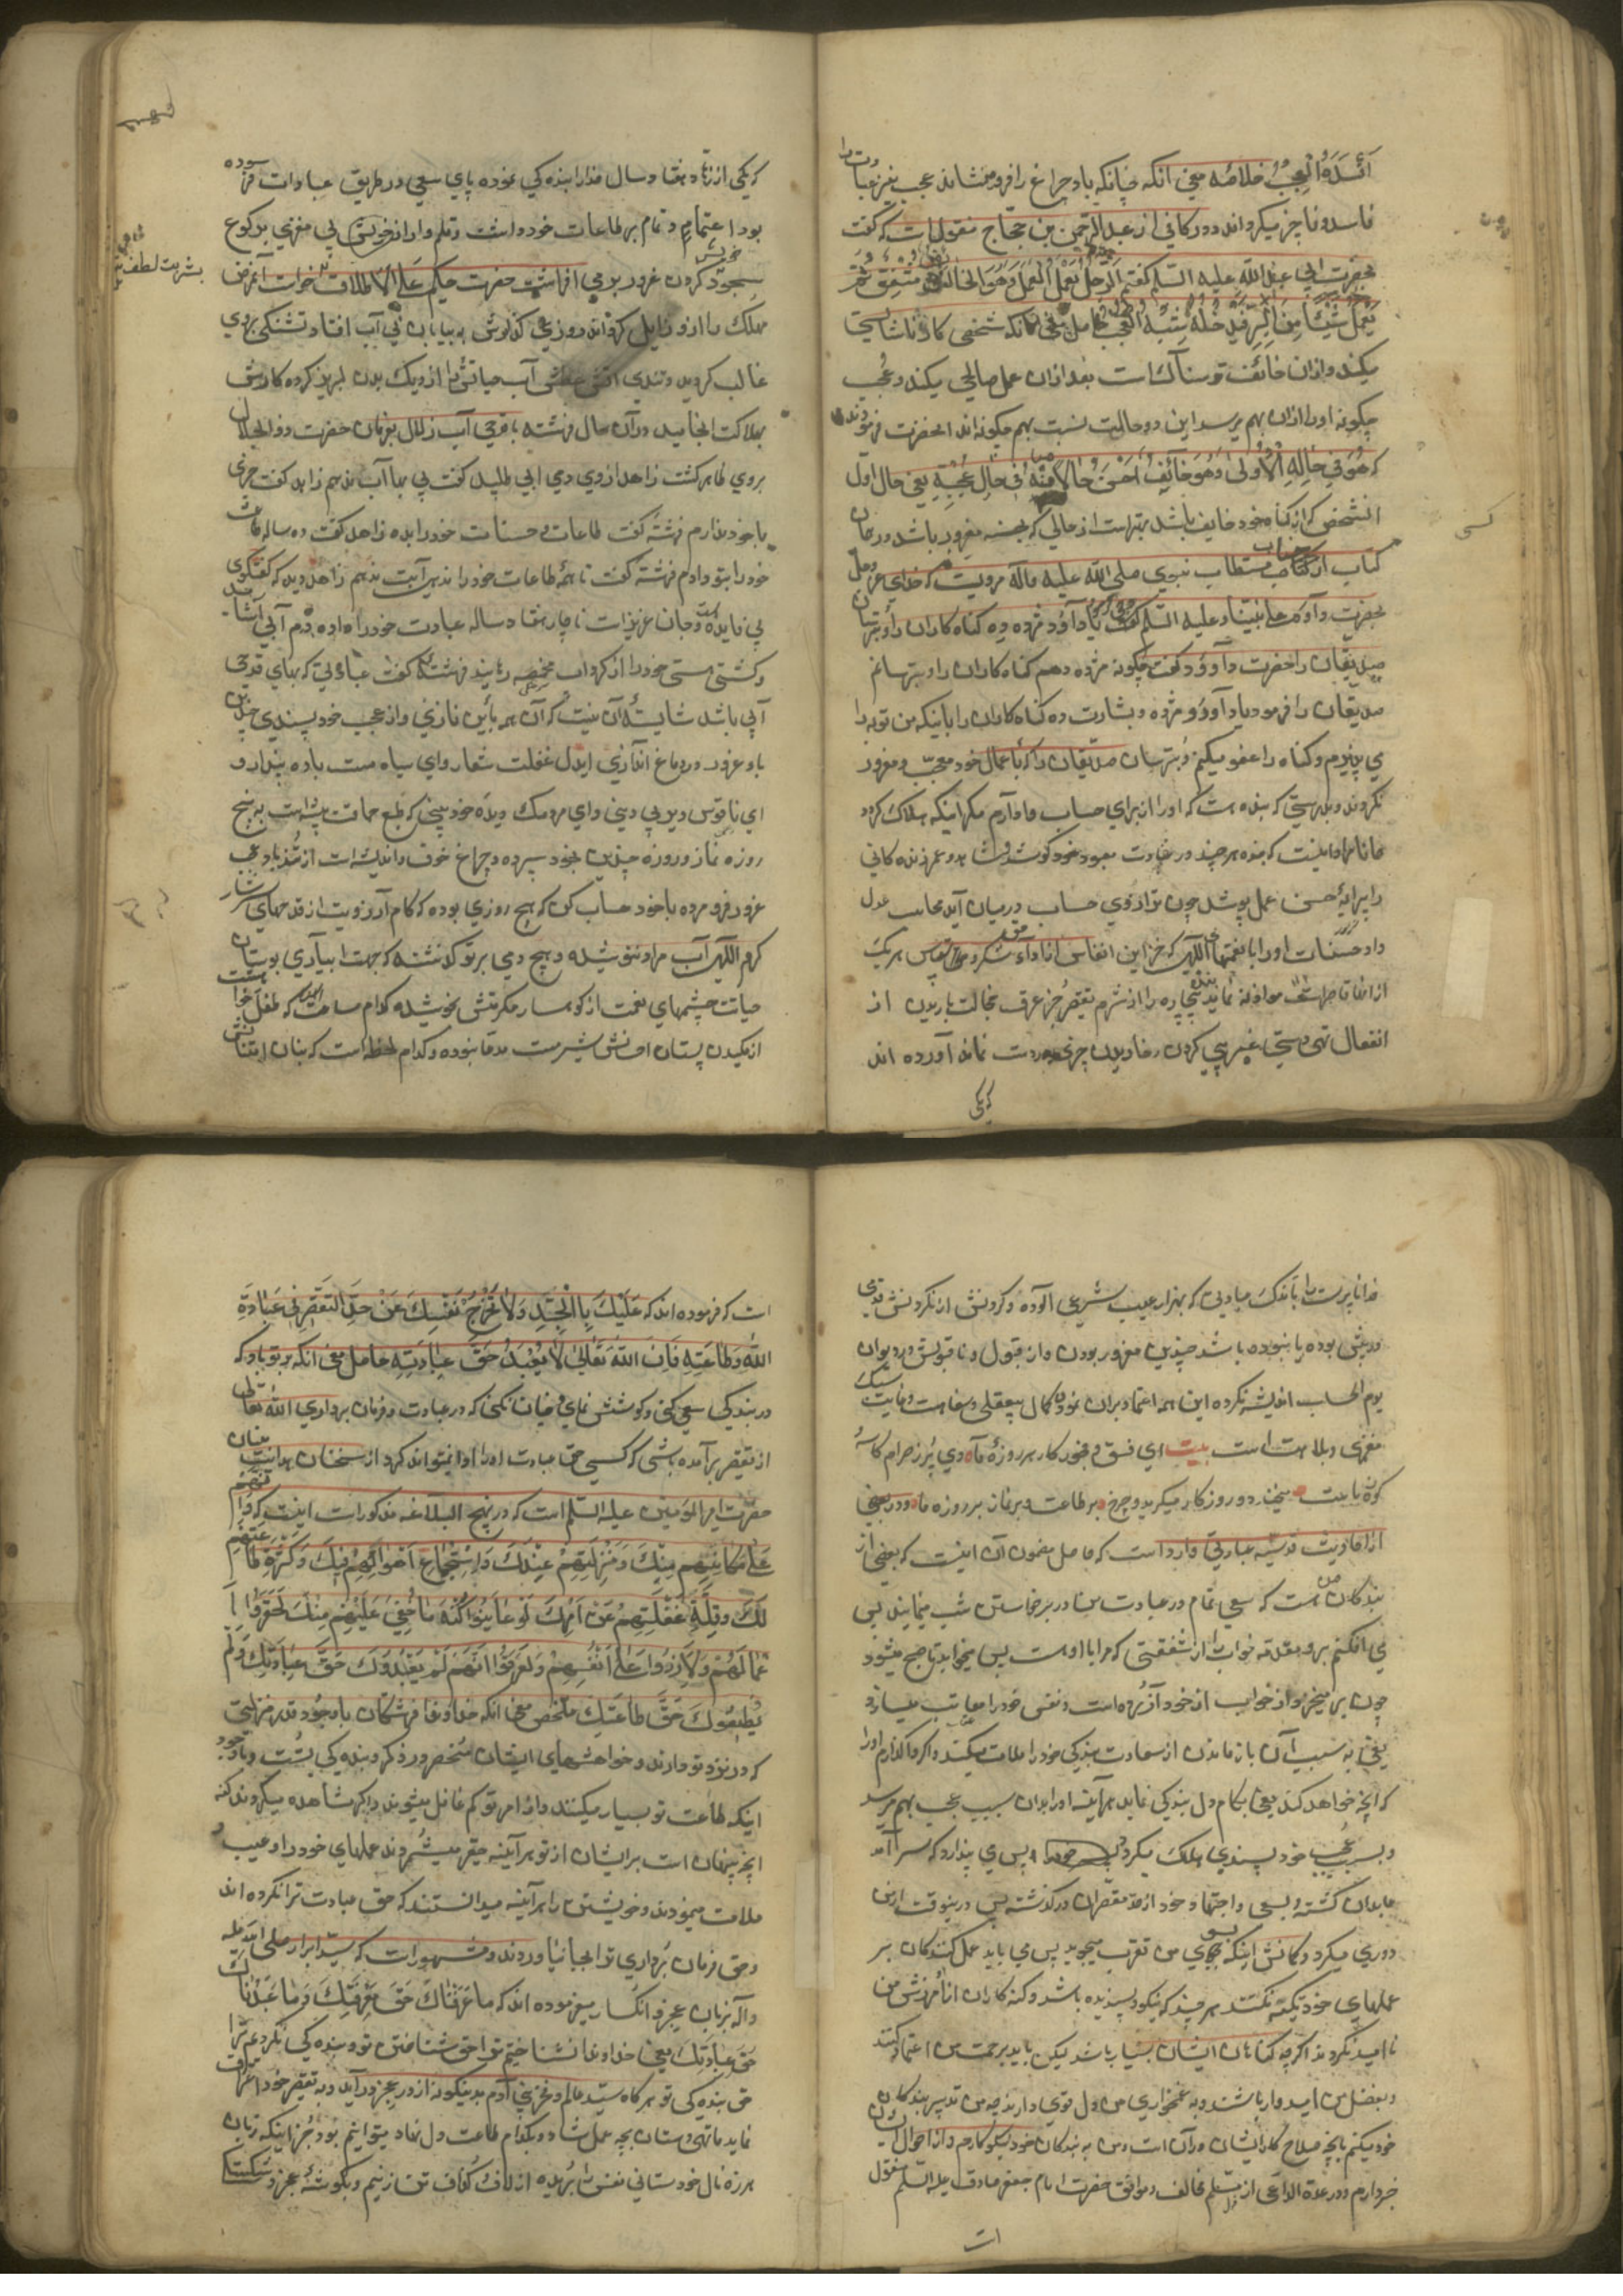 خلاصه معنی آنکه چنانکه باد چراغ را فرو می‌نشاند عجب نیز عبادت را
فاسد و ناچیز میگرداند و در کافی از عبد الرحمن بن حجاج منقول است که گفت
بحضرت ابی عبد الله علیه السلم گفتم الرجل یعمل العمل و هو خائف مشفق ثم
یعمل شیئا من البر فیدخله شبه العجب حاصل معنی آنکه شخصی کار ناشایستی
میکند و از آن خائف و ترسناک است بعد از آن عمل صالحی میکند و عجب
چگونه او را از آن بهم میرسد این دو حالت نسبت بهم چگونه‌اند آنحضرت فرمودند
که هو فی حاله الاولی و هو خائف احسن حالا منه فی حال عجبه یعنی حال اول
آنشخص که از گناه خود خایف باشد بهتر است از حالی که بحسنه مغرور باشد و در همان
کتاب از جناب مستطاب نبوی صلی الله علیه و آله مرویست که خدای عز و جل
بحضرت داود علی نبینا و علیه السلم گفت که یا داود مژده ده گناه کاران را و بترسان
صدیقان را حضرت داود گفت چگونه مژده دهم گناه کاران را و بترسانم
صدیقان را فرمود یا داود مژده و بشارت ده گناه کاران را باینکه من توبه را
می پذیرم و گناه را عفو میکنم و بترسان صدیقان را که باعمال خود معجب و مغرور
نگردند و بدرستی که بنده نیست که او را از برای حساب وادارم مگر اینکه هلاک گردد
همانا مراد اینست که بنده هر چند در عبادت معبود خود کوشد و شاهد و عمر زندگانی
را پیرایه حسن عمل پوشد چون ترازوی حساب در میان آید محاسب عدل
داور حسنات او را با نعمتهای الهی که جز این انفاس اداء شکر هر یک
از انفاق موازنه نماید بنده بیچاره را از شرم تقصیر جز عرق خجالت باریدن از
انفعال تهی دستی چیزی در دست نماند آورده اند
که یکی
که یکی از زهاد هفتاد سال خدا را بندگی نموده پای سعی در طریق عبادات فرسوده
بود اعتماد تمام بر طاعات خود داشت و علم وار از خویش بی مغزی بر کوع
سجود کردن خویش غرور بر می افراشت حضرت حکیم علی الاطلاق خواست آن مرض
مهلک را از او زایل گرداند روزی گذارش به بیابان بی آب افتاد و تشنگی بر وی
غالب گردید و تندی آتش عطش آب حیاتش را از دیک بدن لبریز کرده کارش
بهلاکت انجامید در آن حال فرشته با قدحی آب زلال بفرمان حضرت ذو الجلال
بروی ظاهر گشت زاهد از وی دمی آبی طلبید گفت بی بها آب ندهم زاهد گفت چیزی
با خود ندارم فرشته گفت طاعات و حسنات خود را بده زاهد گفت ده ساله طاعات
خود را بتو دادم فرشته گفت تا همه طاعات خود را ندهی آبت ندهم زاهد دید که گفتگوی
بی فایده است و جان عزیز است ناچار هفتاد ساله عبادت خود را داده دم آبی آشامید
و کشتی هستی خود را از گرداب مخمصه رهانید فرشته گفت عبادتی که بهای قدحی
آبی باشد شایسته آن نیست که آن همه باین نازی و از عجب خود پسندی چندین
باد غرور در دماغ اندازی ای دل غفلت شعار و ای سیاه مست باده پندار و
ای ناقوس دیر بی دینی و ای مردمک دیده خود بینی که طبع حماقت پیشه است به پنج
روزه نماز و روزه چندین بخود سپرده و چراغ خوف و اندیشه ات از تندباد عجب
غرور فرو مرده با خود حساب کن که هیچ روزی بوده که کام آرزویت از قدحهای سرشار
کرم الهی آب مراد ننوشیده و هیچ دمی بر تو گذشته که جهت آبیاری بوستان
حیاتت چشمهای نعمت از کوهسار مکرمتش نجوشیده کدام ساعت که طفل
از مکیدن پستان احسانش شیر مست مدعا نبوده و کدام لحظه است که
خدا ناپرست را باندک عبادتی که بهزار عیب شرعی آلوده و کردنش از نکردنش
در پیش بوده یا نبوده باشد چندین مغرور بودن و از قبول و نا قبولش در دیوان
یوم الحساب اندیشه نکرده این همه اعتماد بر آن نمودن کمال بیعقلی و سفاهت و نهایت
مغزی و بلاهت است بیت ای فسق و فجور کار هر روزه ما وی پر ز حرام کاسه
کوزه ما میخندد روزگار و میگرید چرخ بر طاعت و بر نماز و بر روزه ما و در بعضی
از احادیث قدسیه عبارتی وارد است که حاصل مضمون آن اینست که بعضی از
بندگان من است که سعی تمام در عبادت من دارد برخاستن شب مینماید پس
می افکنم بر او مقدمه خواب از شفقتی که مرا با اوست پس میخوابد تا صبح میشود
چون بر میخیزد از خواب از خود آزرده است و نفس خود را معاتب میسازد
یعنی به سبب آن باز ماندن از سعادت بندگی خود را ملامت میکند و اگر واگذارم او را
که آنچه خواهد کند یعنی بکام دل بندگی نماید هر آینه او را بدان سبب عجب بهم میرسد
و بسبب عجب خود پسندی هلاک میگردد پس می پندارد که سر آمد
عابدان گشته و بسعی و اجتهاد خود از حد مقصران در گذشته پس درینوقت از من
دوری میگردد و گمانش اینکه بسوی من تقرب میجوید پس می باید عمل کنندگان بر
عملهای خود تکیه نکنند هر چند که نیکو و پسندیده باشد و گنه کاران از آمرزش من
نا امید نگردند اگر چه گناهان ایشان بسیار باشد لیکن باید برحمت من اعتماد کنند
و بفضل من امیدوار باشند و به غمخواری من دل قوی دارند چه من تدبیر بندگان
خود میکنم بآنچه صلاح کار ایشان در آن است و من به بندگان خود نیکو کارم و از احوال ایشان
خبردارم و در عدة الداعی از مخالف و موافق حضرت امام جعفر صادق علیه السلم منقول
است
است که فرموده اند که علیک بالجد و لا تخرج نفسک عن حد التقصیر فی عبادة
الله و طاعته فان الله تعالی لا یعبد حق عبادته حاصل معنی آنکه بر تو باد که
در بندگی سعی کنی و کوشش نمای و خیال نکنی که در عبادت و فرمان برداری الله تعالی
از تقصیر برآمده باشی که کسی حق عبادت او را ادا نیتواند کرد از سخنان هدایت بنیان
حضرت امیر المؤمنین علیه السلم است که در نهج البلاغه مذکور است اینست که و انهم
علی مکانتهم منک و منزلتهم عندک و استجماع اهوائهم فیک و کثرة طاعتهم
لک و قلة غفلتهم عن امرک لو عاینوا کنه ما خفی علیهم منک لحقروا ا
عمالهم و لازروا علی انفسهم و لعرفوا انهم لم یعبدوک حق عبادتک و لم
یطیعوک حق طاعتک ملخص معنی آنکه خداوندا فرشتگان باوجود قدر و منزلتی
که در نزد تو دارند و خواهشهای ایشان منحصر در ذکر و بندگی تست و باوجود
اینکه طاعت تو بسیار میکنند و از امر تو کم غافل میشوند اگر مشاهده میکردند کنه
آنچه پنهان است بر ایشان از تو هر آینه حقیر میشمردند عملهای خود را و عیب و
ملامت مینمودند و خویشتن را هر آینه میدانستند که حق عبادت ترا نکرده اند
و حق فرمان برداری ترا بجا نیاوردند و مشهور است که سید ابرار صلی الله علیه
و آله بزبان عجز و انکسار میفرموده اند که ما عرفناک حق معرفتک و ما عبدناک
حق عبادتک یعنی خداوندا نشناختیم ترا حق شناختن تو و بندگی نکردیم ترا
حق بندگی تو هر گاه سید عالم و فخر بنی آدم بدینگونه از در عجز در آید و به تقصیر خود اعتراف
نماید ما تهی دستان بچه عمل شاد و بکدام طاعت دل نهاد میتوانیم بود و بجز اینکه زبان
هرزه نال خودستائی نفس را بریده از لاف گزاف تن زنیم و بگوشه عجز و شکستگی